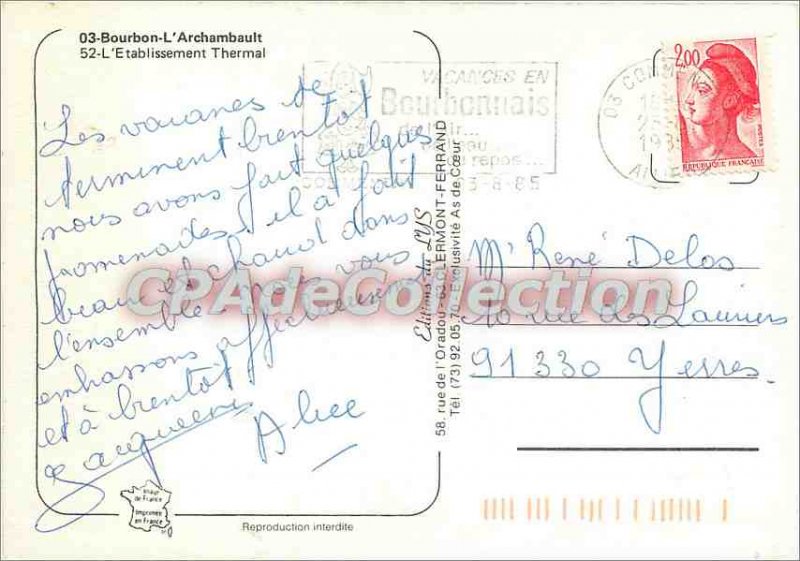 03-Bourbon-L'Archambault
52-L'Etablissement Thermal
Les vacances se
terminent bientôt
nous avons fait quelques
promenades, il a fait
beau et chaud dans
l'ensemble nous vous
embrassons affectueusement
et à bientôt
Alice
VACANCES EN
Bourbonnais
de l'air...
du repos...
3-8-85
03 COMMENTRY
ALLIER
2,00
POSTES
REPUBLIQUE FRANÇAISE
Mr René Delos
rue des Lauriers
91330 Yerres
Editions du LYS
58, rue de l'Oradou - 63 CLERMONT-FERRAND
Tél. (73) 92.05.70 - Exclusivité As de Cœur
CPAdeCollection
Imprimée
en France
Reproduction interdite